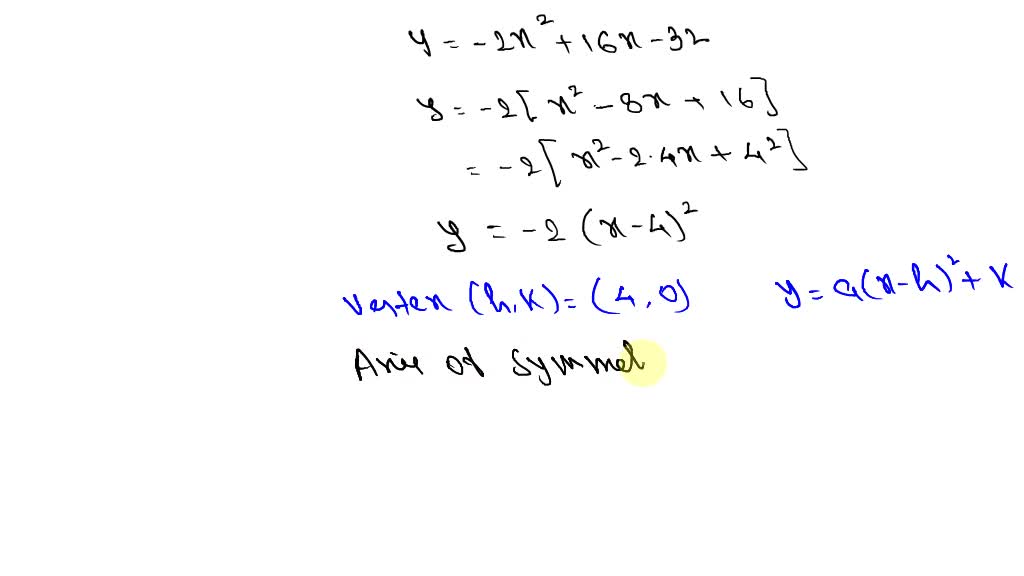 y = -2x² + 16x - 32
y = -2[x² - 8x + 16]
= -2[x² - 2·4x + 4²]
y = -2(x-4)²
Vertex (h,k) = (4,0) y = a(x-h)² + k
Axis of Symmet